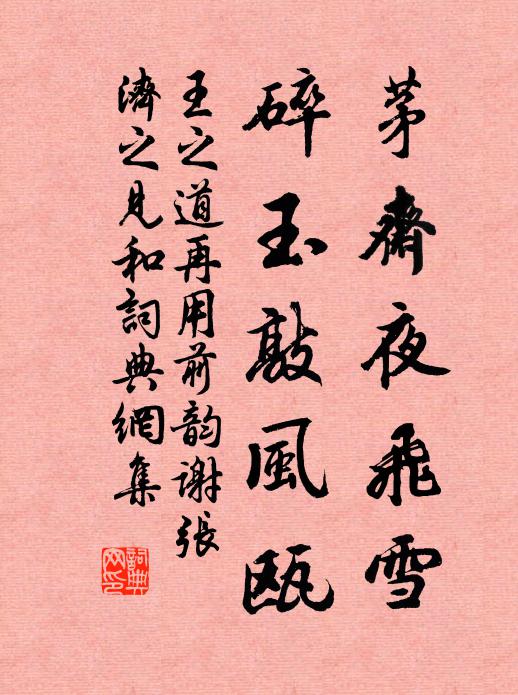 茅齋夜飛雪
碎玉敲風甌
王之道再用前韵謝張
濟之見和詞典網集
詞典网印